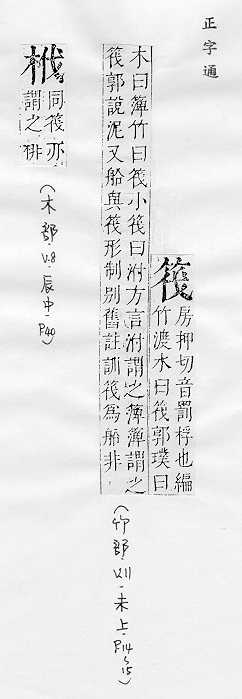 正字通
筏 房押切音罰桴也編
竹渡水曰筏郭璞曰
木曰簰竹曰筏小筏曰泭方言泭謂之簰簰謂之
筏郭說泥又船與筏形制別舊註訓筏為船非
(竹部.V.11-未上-P.14~15)
栰 同筏亦
謂之棑
(木部.V.8-辰中-P.40)